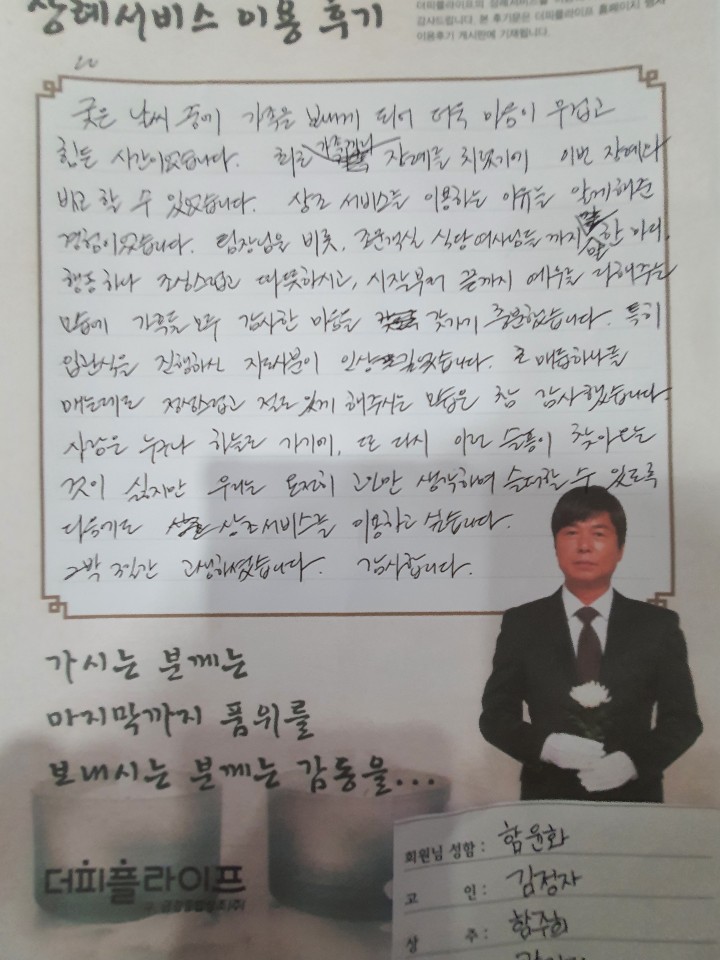 장례서비스 이용 후기
감사드립니다. 본 후기문은 더피플라이프 홈페이지 행사
이용후기 게시판에 기재됩니다.
궂은 날씨 중에 가족을 보내게 되어 더욱 마음이 무겁고
힘든 시간이었습니다. 최근 장례를 치렀기에 이번 장례와
비교 할 수 있었습니다. 상조 서비스를 이용하는 이유를 알게해준
경험이었습니다. 팀장님을 비롯, 조문객실 식당여사님들 까지 말 한 마디,
행동 하나 조심스럽고 따뜻하시고, 시작부터 끝까지 예우를 다해주는
모습에 가족들 모두 감사한 마음을 갖기 충분했습니다. 특히
입관식을 진행하신 지도사분이 인상 깊었습니다. 끈 매듭하나를
매는데도 정성스럽고 절도 있게 해주시는 모습은 참 감사했습니다.
사람은 누구나 하늘로 가기에, 또 다시 이런 슬픔이 찾아오는
것이 싫지만 우리는 온전히 고인만 생각하며 슬퍼할 수 있도록
다음에도 상조서비스를 이용하고 싶습니다.
2박 3일간 고생하셨습니다. 감사합니다.
가시는 분께는
마지막까지 품위를
보내시는 분께는 감동을...
더피플라이프
회원님 성함 : 함윤화
고 인 : 김정자
상 주 : 함주희